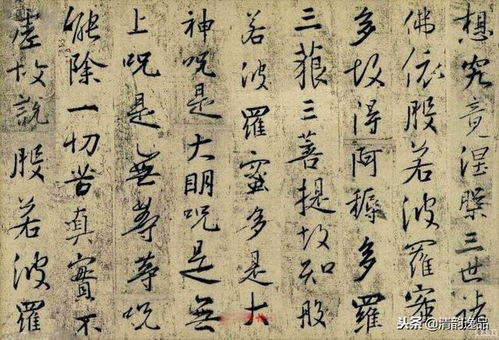 想究竟涅槃三世諸
佛依般若波羅蜜
多故得阿耨多羅
三藐三菩提故知般
若波羅蜜多是大
神呪是大明呪是無
上呪是無等等呪
能除一切苦真實不
虛故說般若波羅
头条 @清韵逸品